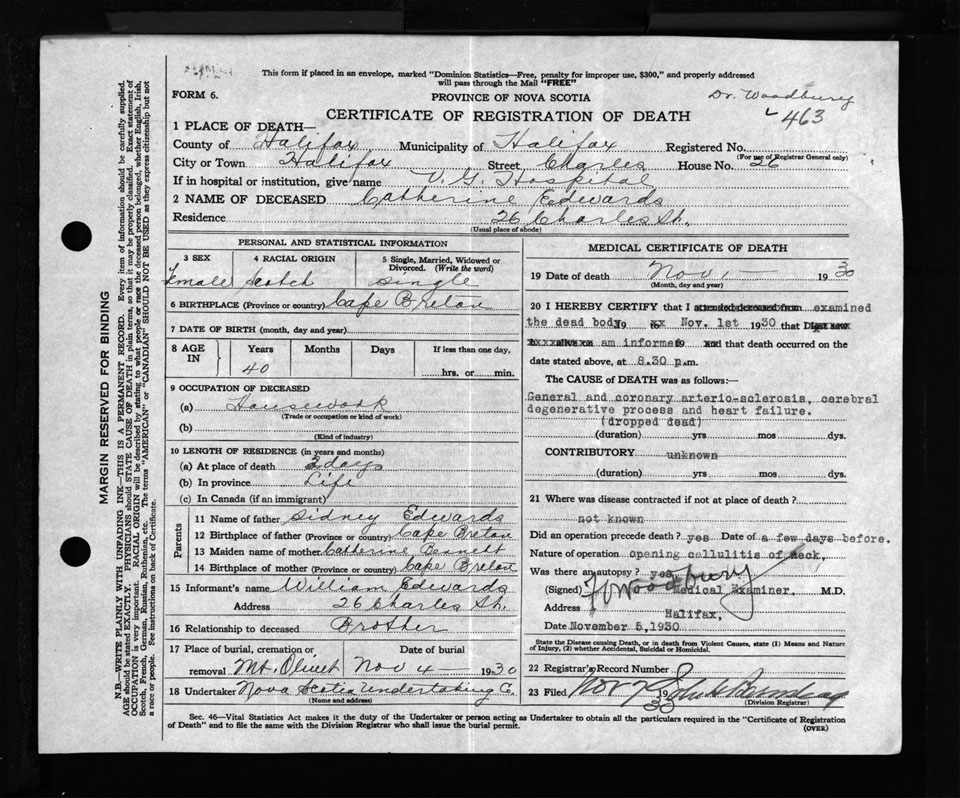 This form if placed in an envelope, marked "Dominion Statistics—Free, penalty for improper use, $300," and properly addressed
will pass through the Mail "FREE"
FORM 6.
PROVINCE OF NOVA SCOTIA
Dr. Woodbury
463
CERTIFICATE OF REGISTRATION OF DEATH
1 PLACE OF DEATH—
County of Halifax Municipality of Halifax Registered No.
(For use of Registrar General only)
City or Town Halifax Street Charles House No. 26
If in hospital or institution, give name V. G. Hospital
2 NAME OF DECEASED Catherine Edwards
Residence 26 Charles St.
(Usual place of abode)
PERSONAL AND STATISTICAL INFORMATION
3 SEX 4 RACIAL ORIGIN 5 Single, Married, Widowed or Divorced. (Write the word)
Female Scotch Single
6 BIRTHPLACE (Province or country) Cape Breton
7 DATE OF BIRTH (month, day and year)
8 AGE IN Years Months Days If less than one day,
40 hrs. or min.
9 OCCUPATION OF DECEASED
(a) Housework
(Trade or occupation or kind of work)
(b)
(Kind of industry)
10 LENGTH OF RESIDENCE (in years and months)
(a) At place of death 2 days
(b) In province Life
(c) In Canada (if an immigrant)
Parents
11 Name of father Sidney Edwards
12 Birthplace of father (Province or country) Cape Breton
13 Maiden name of mother Catherine Bennett
14 Birthplace of mother (Province or country) Cape Breton
15 Informant's name William Edwards
Address 26 Charles St.
16 Relationship to deceased Brother
17 Place of burial, cremation or removal Date of burial
Mt. Olivet Nov 4 — 1930
18 Undertaker Nova Scotia Undertaking Co.
(Name and address)
MEDICAL CERTIFICATE OF DEATH
19 Date of death Nov. 1 — 1930
(Month, day and year)
20 I HEREBY CERTIFY that I attended deceased from examined
the dead body 19 xx Nov. 1st 1930 that I last saw
am informed 19 and that death occurred on the
date stated above, at 8.30 p.m.
The CAUSE of DEATH was as follows:—
General and coronary arterio-sclerosis, cerebral
degenerative process and heart failure.
(dropped dead)
(duration) yrs mos dys.
CONTRIBUTORY unknown
(duration) yrs mos dys.
21 Where was disease contracted if not at place of death?
not known
Did an operation precede death? yes Date of a few days before.
Nature of operation opening cellulitis of neck.
Was there an autopsy? yes
(Signed) Woodbury Medical Examiner, M.D.
Address Halifax,
Date November 5, 1930
State the Disease causing Death, or in death from Violent Causes, state (1) Means and Nature of Injury, (2) whether Accidental, Suicidal or Homicidal.
22 Registrar's Record Number
23 Filed Nov 7 1930
(Division Registrar)
Sec. 46—Vital Statistics Act makes it the duty of the Undertaker or person acting as Undertaker to obtain all the particulars required in the "Certificate of Registration
of Death" and to file the same with the Division Registrar who shall issue the burial permit.
(OVER)
MARGIN RESERVED FOR BINDING
N.B.—WRITE PLAINLY WITH UNFADING INK—THIS IS A PERMANENT RECORD. Every item of information should be carefully supplied.
AGE should be stated EXACTLY. PHYSICIANS should STATE CAUSE OF DEATH in plain terms, so that it may be properly classified. Exact statement of
OCCUPATION is very important. RACIAL ORIGIN will be described by stating to what people or race the deceased person belonged, whether English, Irish,
Scotch, French, German, Russian, Ruthenian, etc. The terms "AMERICAN" or "CANADIAN" SHOULD NOT BE USED as they express citizenship but not
a race or people. See instructions on back of Certificate.